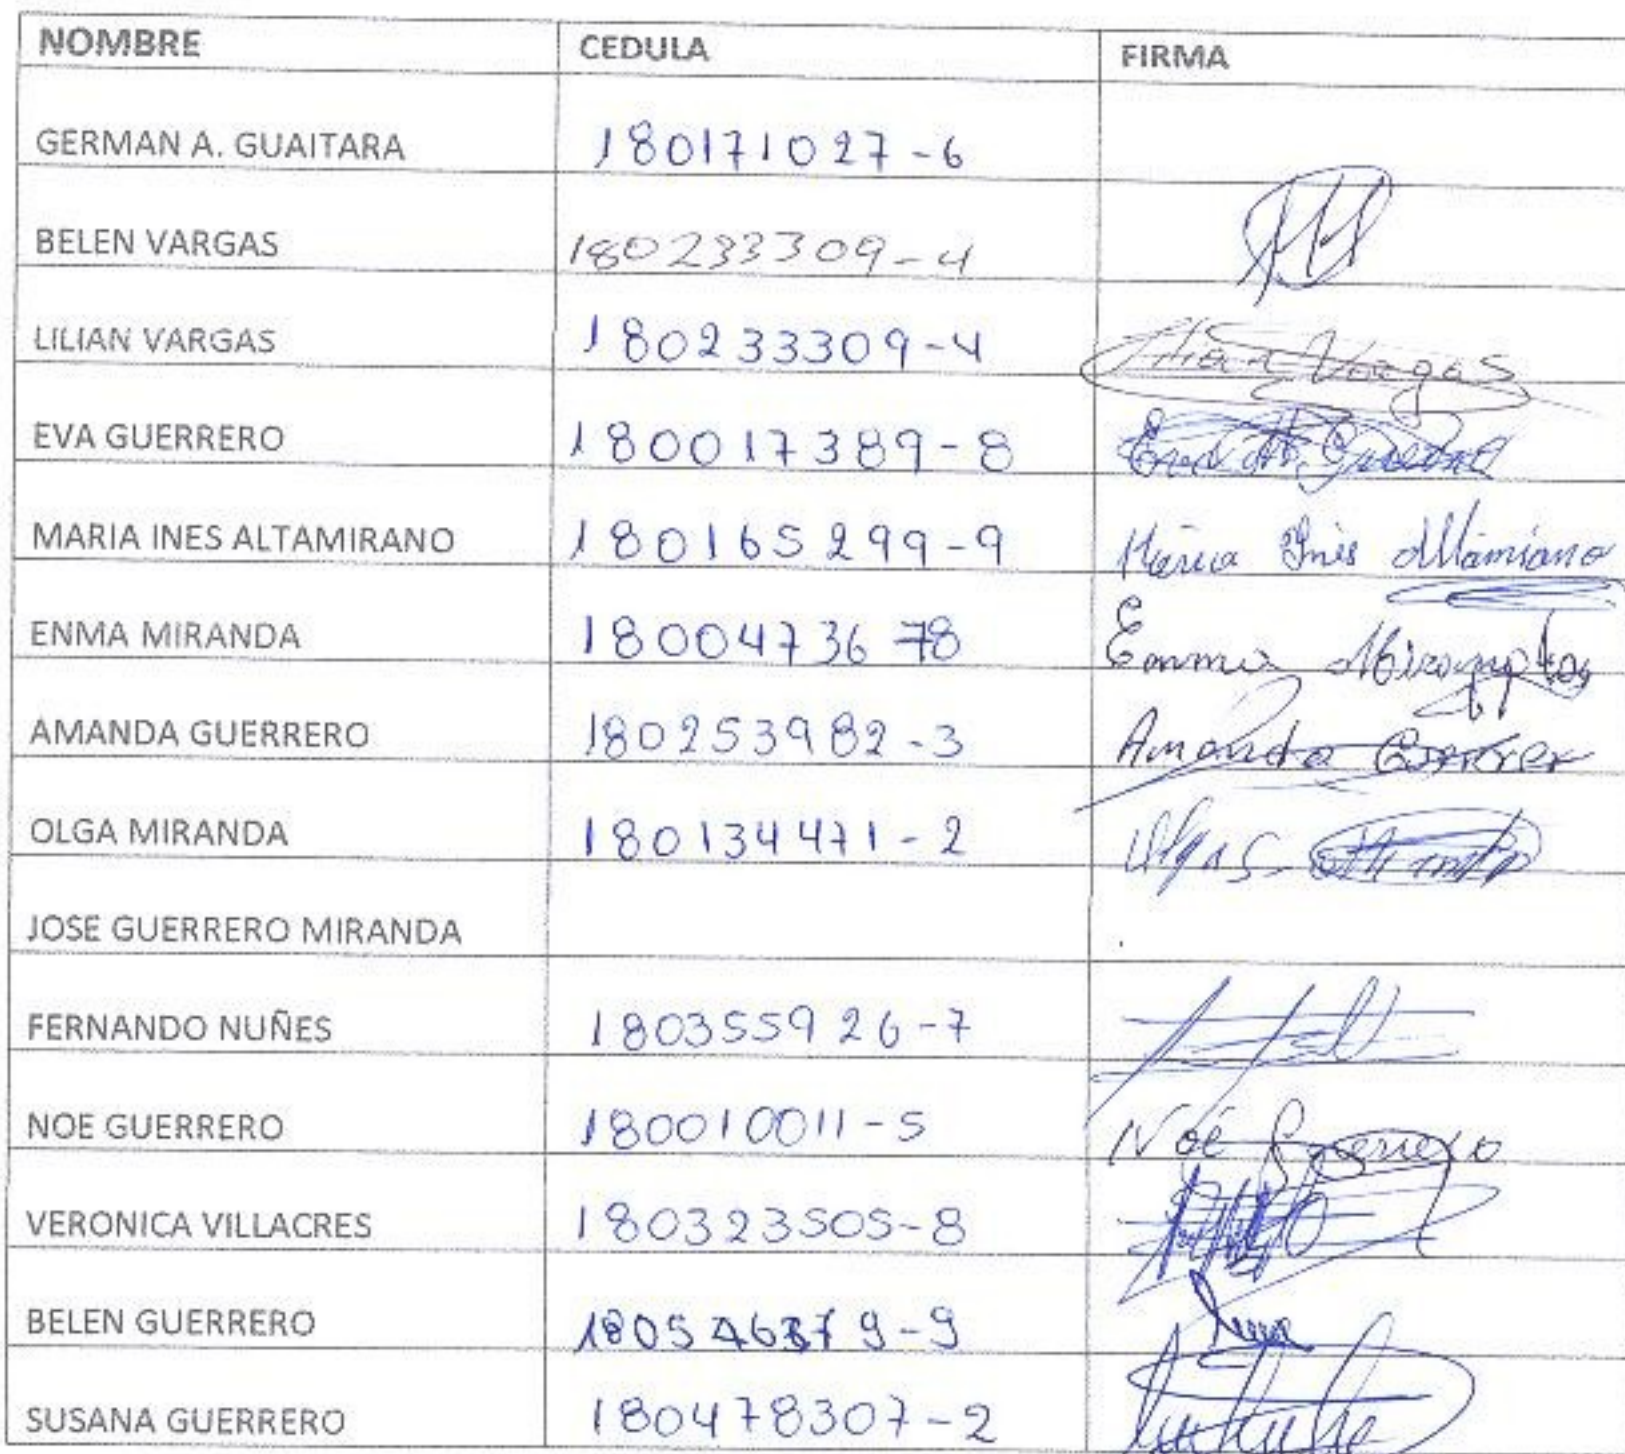 NOMBRE CEDULA FIRMA
GERMAN A. GUAITARA 180171027-6
BELEN VARGAS 180233309-4
LILIAN VARGAS 180233309-4 Lilian Vargas
EVA GUERRERO 180017389-8 Eva
MARIA INES ALTAMIRANO 180165299-9 Maria Inés Altamirano
ENMA MIRANDA 1800473678 Emma Miranda
AMANDA GUERRERO 180253982-3 Amanda Guerrer
OLGA MIRANDA 180134471-2 Olga
JOSE GUERRERO MIRANDA
FERNANDO NUÑES 180355926-7
NOE GUERRERO 180010011-5 Noé Guerrero
VERONICA VILLACRES 180323505-8
BELEN GUERRERO
SUSANA GUERRERO 180478307-2